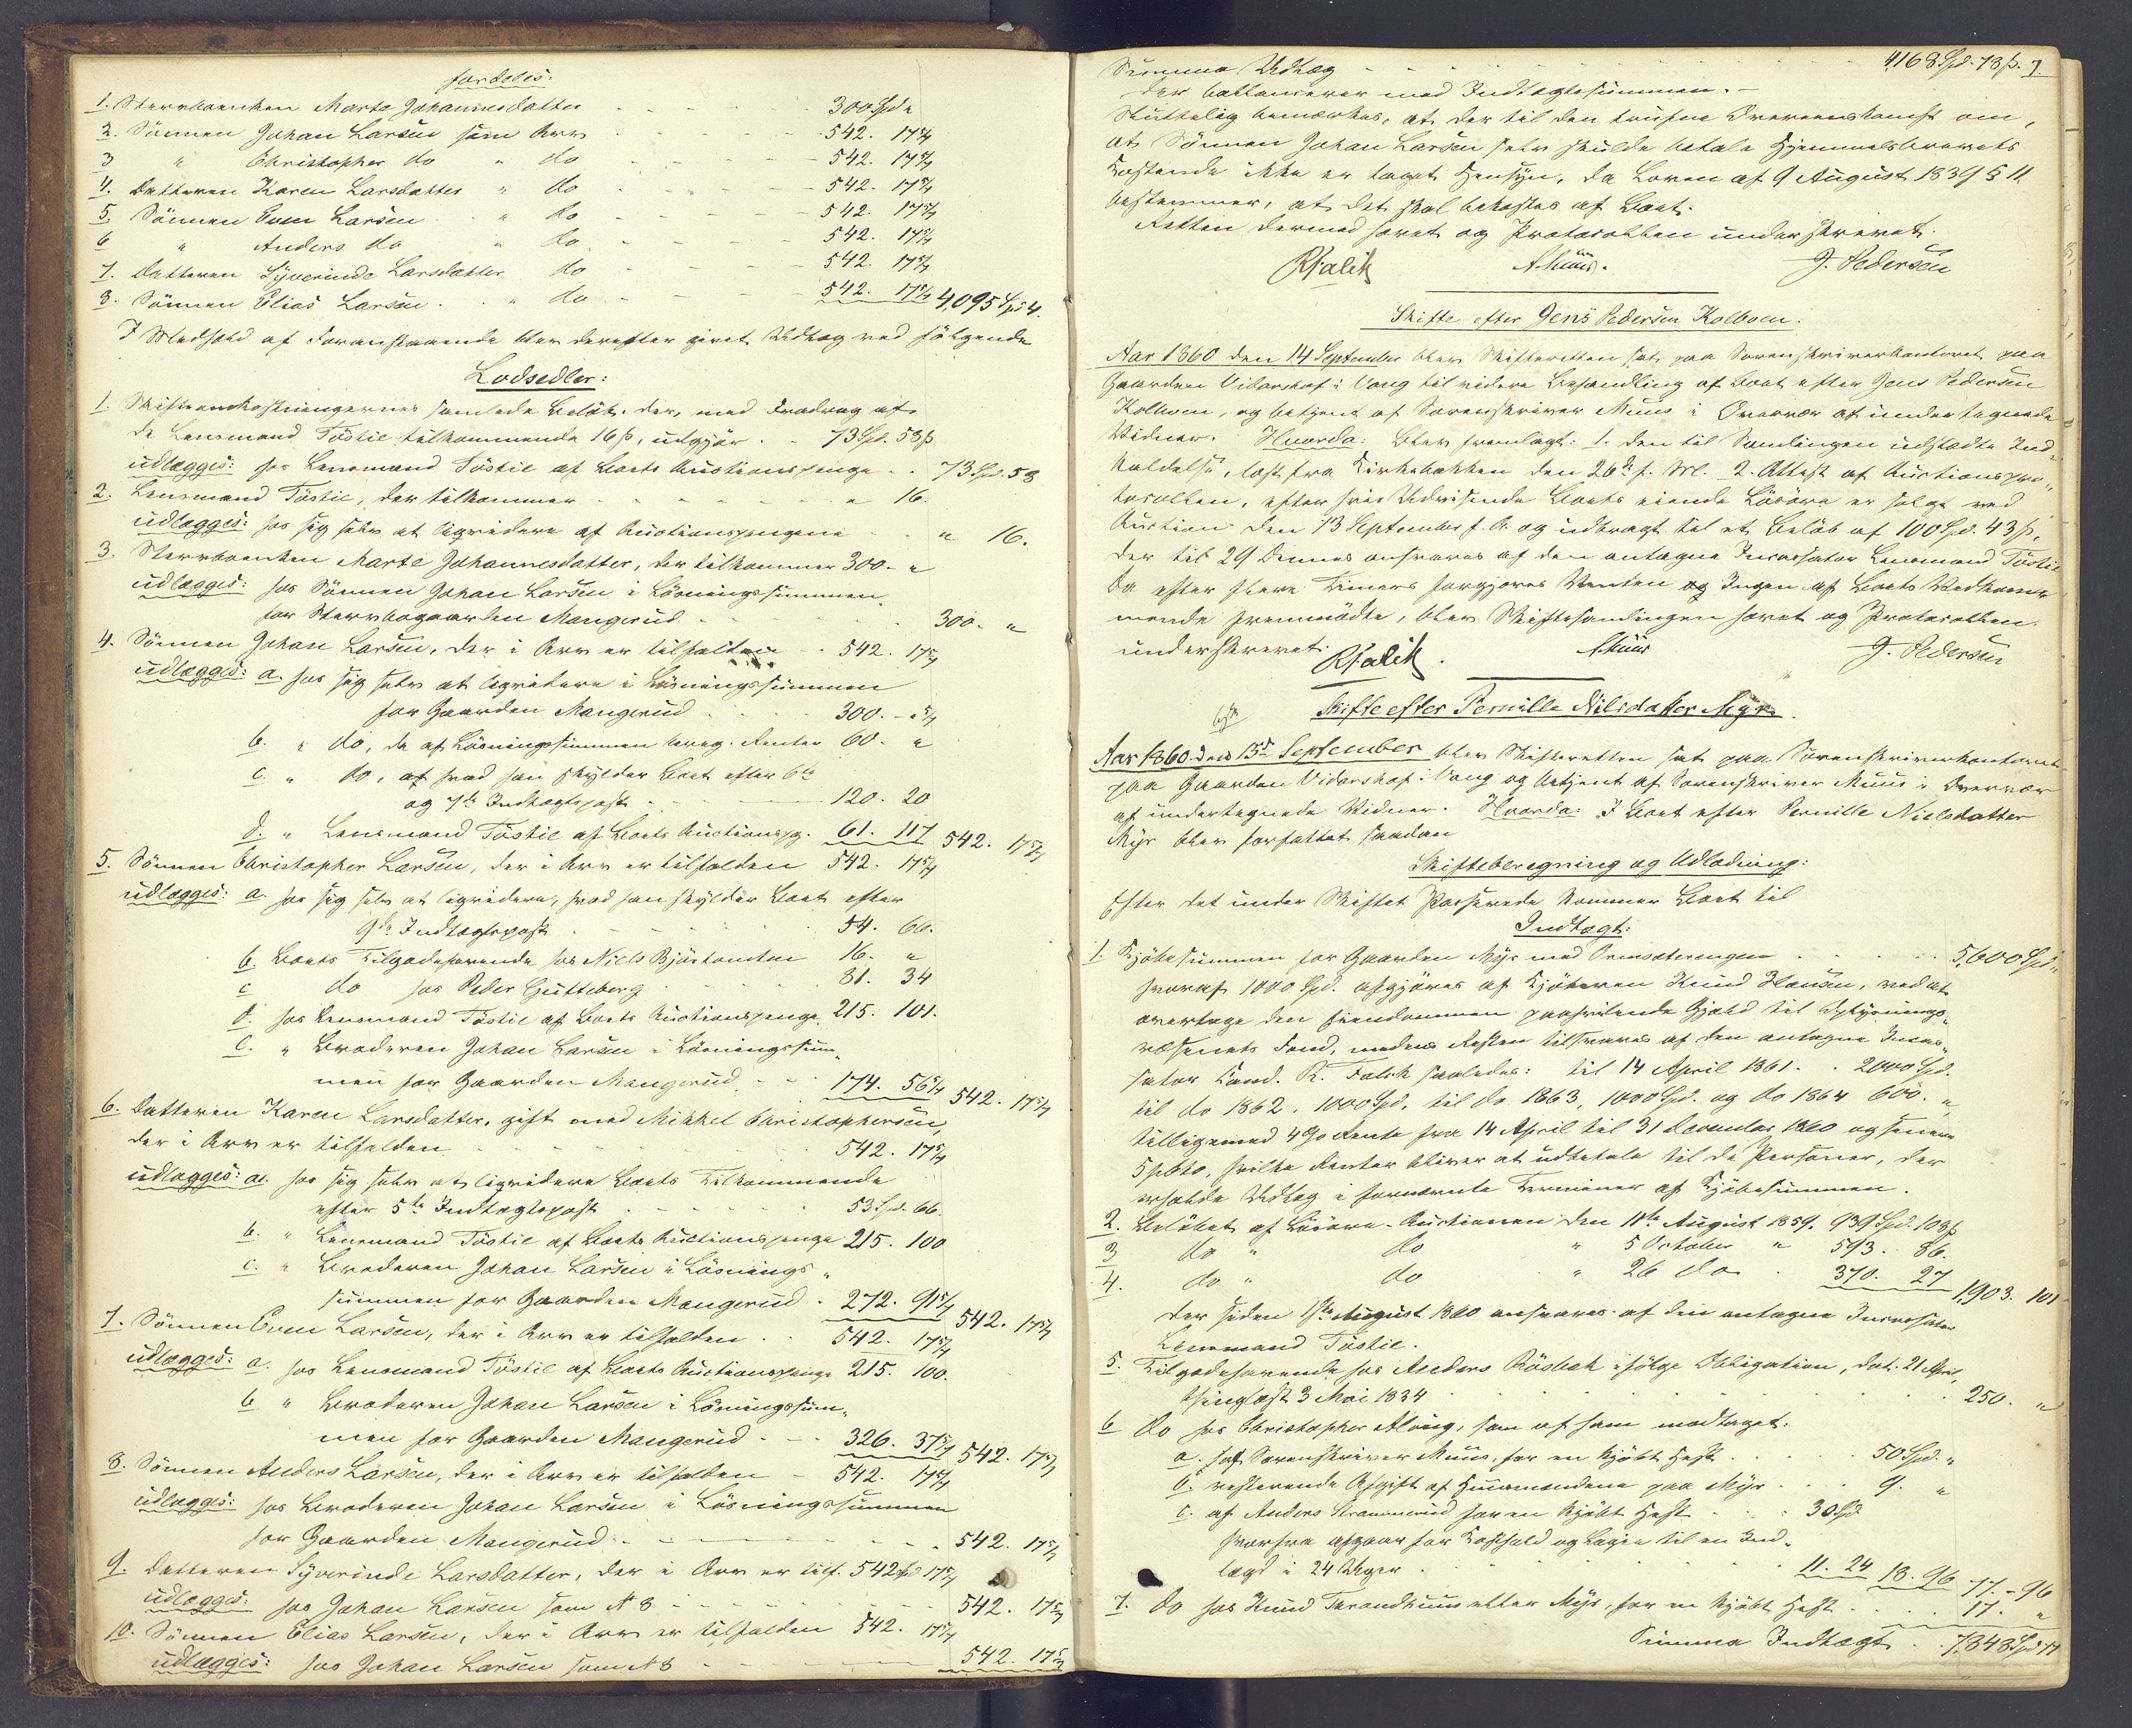 fordeles:
1. Stervboenken Marte Johannesdatter 300 Spd "
2. Sönnen Johan Larsen som Arv 542. 17 5/7
3 " Christopher do " do 542. 17 5/7
4. Datteren Karen Larsdatter " do 542. 17 5/7
5. Sönnen Even Larsen " do 542. 17 5/7
6 " Anders do " do 542. 17 5/7
7. Datteren Syverinde Larsdatter do 542. 17 5/7
8. Sönnen Elias Larsen " do 542. 17 5/7 4,095 Spd 4.
I Medhold af Foranstaaende blev derefter givet Udlæg ved følgende
Lodsedler:
1. Skifteomkostningernes samlede Beløb, der, med Fradrag af
de Lensmand Töstie tilkommende 16 ß, udgjør 73 Spd. 58 ß
udlægges: hos Lensmand Töstie af Boets Auctionspenge 73 Spd. 58
2. Lensmand Töstie, der tilkommer " 16.
udlægges: hos sig selv at liqvidere af Auctionspengene " 16.
3. Stervboenken Marte Johannesdatter, der tilkommer 300. "
udlægges: hos Sönnen Johan Larsen i Løsningssummen
for Sterbogaarden Mangerud 300. "
4. Sönnen Johan Larsen, der i Arv er tilfalden 542. 17 5/7
udlægges: a. hos sig selv at liqvidere i Løsningssummen
for Gaarden Mangerud 300. - 5/7
b. " do, de af Løsningssummen bereg. Renter 60. "
c. " do, af hvad han skylder Boet efter 6te
og 7de Indtægtspost 120. 20
d. " Lensmand Töstie af Boets Auctionspg. 61. 117 542. 17 5/7
5. Sönnen Christopher Larsen, der i Arv er tilfalden 542. 17 5/7
udlægges: a. hos sig selv at liqvidere, hvad han skylder Boet efter
9de Indtægtspost 54. 66.
b. Boets Tilgodehavende hos Niels 16. "
c do hos Peder Gutteberg 81. 34
d. hos Lensmand Töstie af Boets Auctionspenge 215. 101.
e. " Broderen Johan Larsen i Løsningssum-
men for Gaarden Mangerud 174. 56 5/7 542. 17 5/7
6. Datteren Karen Larsdatter, gift med Mikkel Christophersen,
der i Arv er tilfalden 542. 17 5/7
udlægges: a. hos sig selv at liqvidere Boets Tilkommende
efter 5te Indtægtspost 53 Spd. 66.
b. " Lensmand Töstie af Boets Auctionspenge 215. 100
c. " Broderen Johan Larsen i Løsnings-
summen for Gaarden Mangerud 272. 91 5/7 542. 17 5/7
7. Sönnen Even Larsen, der i Arv er tilfalden 542. 17 5/7
udlægges: a. hos Lensmand Töstie af Boets Auctionspenge 215. 100.
b " Broderen Johan Larsen i Løsningssum-
men for Gaarden Mangerud 326. 37 5/7 542. 17 5/7
8. Sönnen Anders Larsen, der i Arv er tilfalden 542. 17 5/7
udlægges: hos Broderen Johan Larsen i Løsningssummen
for Gaarden Mangerud 542. 17 5/7
9. Datteren Syverinde Larsdatter, der i Arv er tilf. 542 Spd 17 5/7
udlægges: hos Johan Larsen som N 8 542. 17 5/7
10. Sönnen Elias Larsen, der i Arv er tilfalden 542. 17 5/7
udlægges: hos Johan Larsen som N 8 542. 17 5/7
Summa Udlæg 4,168 Spd. 78 ß.
der ballancerer med Indtægtssummen.
Sluttelig bemærkes, at der til den trufne Overeenskomst om,
at Sönnen Johan Larsen selv skulde betale Hjemmelsbrevets
Kostende ikke er taget Hensyn, da Loven af 9 August 1839 § 11.
bestemmer, at det skal bekostes af Boet.
Retten dermed hævet og Protocollen underskrevet.
RFalck AMuus. J. Pedersen
Skifte efter Jens Pedersen Kolboen.
Aar 1860 den 14 September blev Skifteretten sat paa Sorenskriverkontoret paa
Gaarden Vidarshof i Vang til videre Behandling af Boet efter Jens Pedersen
Kolboen, og betjent af Sorenskriver Muus i Overvær af undertegnede
Vidner. Hvorda: blev fremlagt: 1. den til Samlingen udstædte Ind-
kaldelse, læst fra Kirkebakken den 26de f. M. 2. Attest af Auctionspro-
tocollen, efter hvis Udvisende Boets eiende Løsøre er solgt ved
Auction den 13 September f. A. og udbragt til et Beløb af 100 Spd. 43 ß,
der til 29 Dennes ansvares af den antagne Incassator Lensmand Töstie
Da efter flere Timers forgjæves Venten og Ingen af Boets Vedkom-
mende fremmødte, blev Skiftesamlingen hævet og Protocollen
underskrevet.
RFalck. AMuus J. Pedersen
Skifte efter Pernille Nilsdatter Myr.
Aar 1860 den 15de September blev Skifteretten sat paa Sorenskriverkontoret
paa Gaarden Vidarshof i Vang og betjent af Sorenskriver Muus i Overvær
af undertegnede Vidner. Hvorda: I Boet efter Pernille Nielsdatter
Myr blev forfattet saadan
Skifteberegning og Udlodning:
Efter det under Skiftet Passerede kommer Boet til
Indtægt:
1. Kjöbesummen for Gaarden Myr med 5,600 Spd "
hvoraf 1000 Spd. afgjøres af Kjöberen Knud Hansen, ved at
overtage den Eiendommen paahvilende Gjæld til Oplysnings-
væsenets Fond, medens Resten tilsvares af den antagne Incas-
sator Cand. R. Falck saaledes: til 14 April 1861. 2000 Spd.
til do 1862. 1000 Spd, til do 1863, 1000 Spd. og do 1864 600. "
tilligemed 4% Rente fra 14 April til 31 December 1860 og senere
5 pCto, hvilke Renter bliver at udbetale til de Personer, der
erholde Udlæg i fornævnte Terminer af Kjöbesummen.
2. Beløbet af Løsøre-Auctionen den 11te August 1859. 939 Spd. 108 ß
3 do " do " 5 October " 593. 86.
4. do " do " 26 do 370. 27 1,903. 101
der siden 1ste August 1860 ansvares af den antagne Incassator
Lensmand Töstie.
5. Tilgodehavende hos Anders Rösbak ifølge Obligation, dat. 21 April,
thinglæst 3 Mai 1834 250. "
6 do hos Christopher Alving, som af ham modtaget:
a. hos Sorenskriver Muus, for en kjöbt Hest 50 Spd. "
b. resterende Afgift af Huusmændene paa Myr 9. "
c. af Anders for en kjöbt Hest 30 Spd
hvorfra afgaar for Kosthold og Logis til en Ind-
lagd i 24 Uger 11. 24 18. 96 77. - 96
7. do hos Knud Myr, for en kjöbt Hest 17. "
Summa Indtægt 7,848 Spd 77